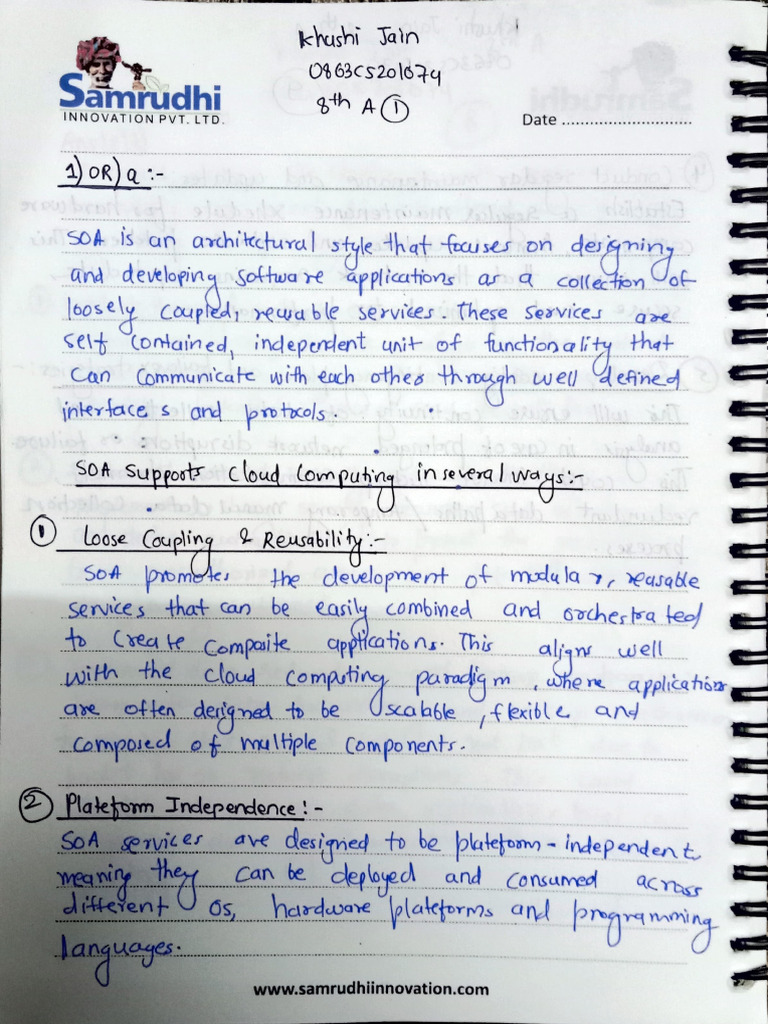 Khushi Jain
0863CS201074
8th A ①
Samrudhi
INNOVATION PVT. LTD.
Date ..............................
1) OR) a :-
SOA is an architectural style that focuses on designing
and developing software applications as a collection of
loosely coupled, reusable services. These services are
self contained, independent unit of functionality that
can communicate with each other through well defined
interfaces and protocols.
SOA supports cloud computing in several ways:-
① Loose Coupling & Reusability:-
SOA promotes the development of modular, reusable
services that can be easily combined and orchestrated
to create composite applications. This aligns well
with the cloud computing paradigm, where applications
are often designed to be scalable, flexible and
composed of multiple components.
② Plateform Independence:-
SOA services are designed to be plateform-independent
meaning they can be deployed and consumed across
different OS, hardware plateforms and programming
languages.
www.samrudhiinnovation.com